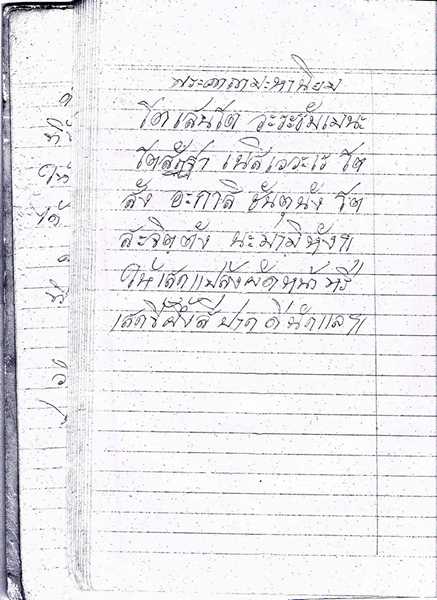 พระคาถามะหานิยม
โตเสนโต วะระธัมเมนะ
โตสัฏฐา เนสิเววะเร โต
สัง อะกาสิ ชันตุนัง โต
สะจิตตัง นะมามิหังฯ
ให้เสกแป้งผัดหน้า หรือ
เสกขี้ผึ้งสีปาก ดีนักแลฯ